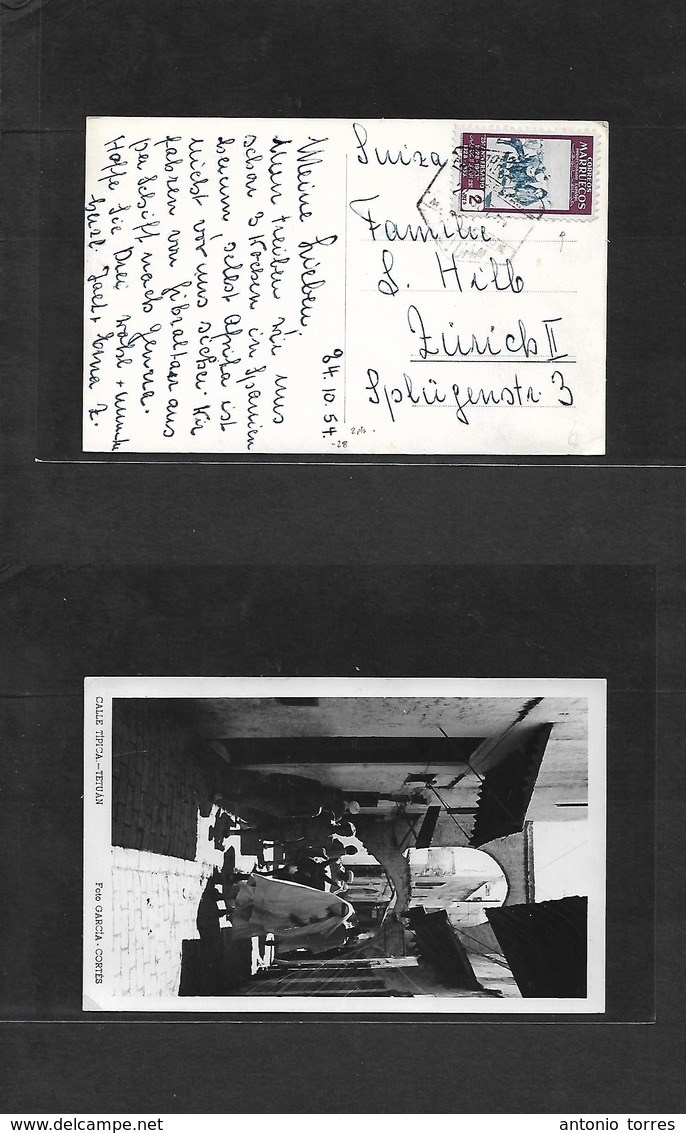 Meine Lieben,
24.10.54.
Nun treiben wir uns
schon 3 Wochen in Spanien
herum, selbst Afrika ist
nicht vor uns sicher. Wir
fahren von Gibraltar aus
per Schiff nach Genua.
Hoffe Sie Drei wohl + munter
Jaet + Erna Z.
Suiza
CORREOS
MARRUECOS
2
Familie
S. Hilb
Zürich II
Splügenstr. 3
2 pts.
-28
CALLE TÍPICA.—TETUÁN
Foto GARCÍA - CORTÉS
antonio torres